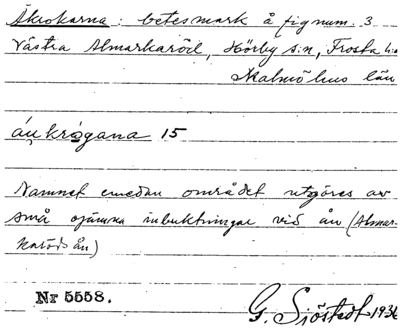 Åkrokarna: betesmark å fignum. 3
Västra Almarkaröd, Hörby s:n, Frosta h:d
Malmöhus län
åu̯krǫgana 15
Namnet emedan området utgöres av
små ojämna inbuktningar vid ån (Almar-
karöds ån)
Nr 5558.
G. Sjöstedt 1936